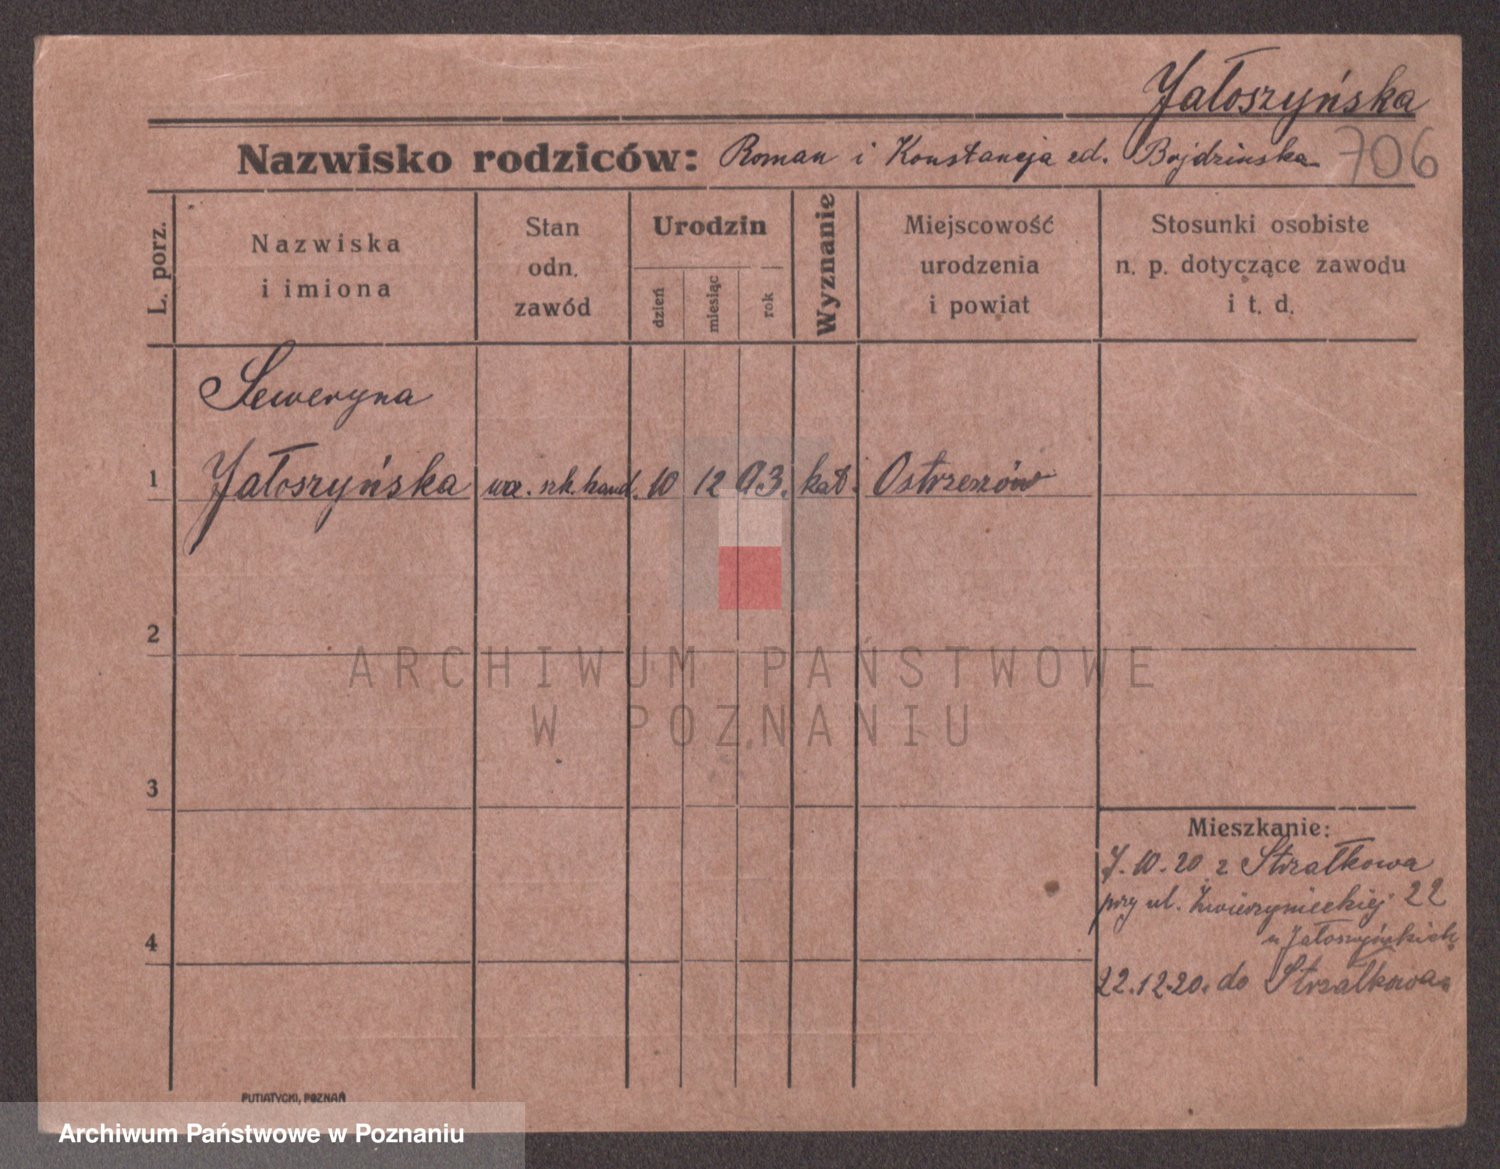 Jałoszyńska
Nazwisko rodziców: Roman i Konstancja ed. Bojdzinska 706
L. porz.
Nazwiska
i imiona
Stan
odn.
zawód
Urodzin
dzień
miesiąc
rok
Wyznanie
Miejscowość
urodzenia
i powiat
Stosunki osobiste
n. p. dotyczące zawodu
i t. d.
Seweryna
1 Jałoszyńska ucz. szk. hand. 10 12 93. kat. Ostrzeszów
2
ARCHIWUM PAŃSTWOWE
W POZNANIU
3
Mieszkanie:
7.10.20 z Strzałkowa
przy ul. Zwierzynieckiej 22
u Jałoszyńskich
4
22.12.20. do Strzałkowa
PUTIATYCKI, POZNAŃ
Archiwum Państwowe w Poznaniu